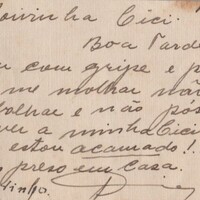 oivinha Cici.
Boa Tarde
u com gripe e p
me molhar não
olhar e não pós
ver a minha Cici
estou acamado!.
preso em casa.
dinho.